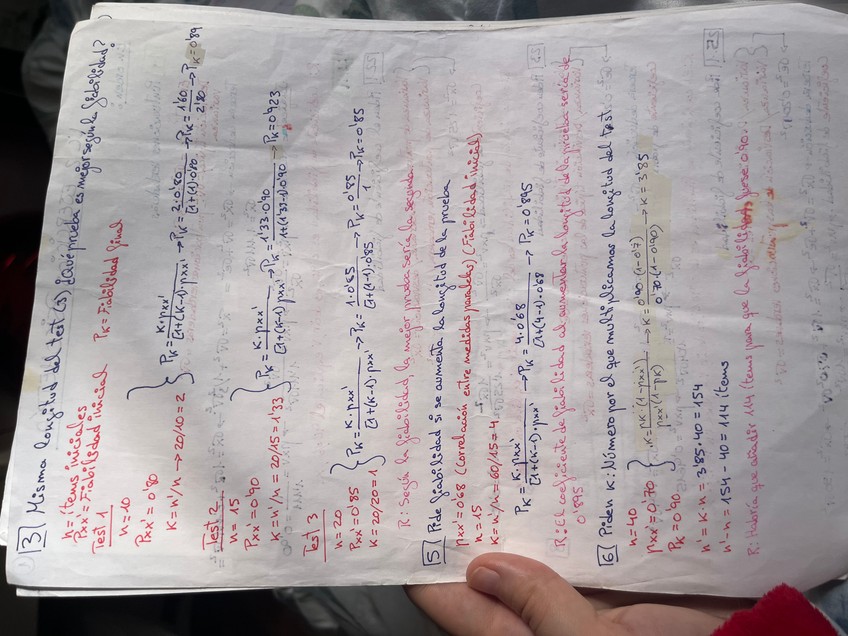 [3] Misma longitud del test (s) ¿Qué prueba es mejor según la fiabilidad?
n = ítems iniciales
Pxx' = Fiabilidad inicial PK = Fiabilidad final
Test 1
n = 10
Pxx' 0'80
K = n'/n → 20/10 = 2 } PK = K·pxx' / [1+(K-1)·pxx' → PK = 2·0'80 / [1+(1)·0'80 → PK = 1'60 / 2'80 → PK = 0'89
Test 2
n = 15
Pxx' = 0'90
K = n'/n = 20/15 = 1'33 } PK = K·pxx' / [1+(K-1)·pxx' → PK = 1'33·0'90 / 1+(1'33-1)·0'90 → PK = 0'923
Test 3
n = 20
Pxx' = 0'85
K = 20/20 = 1 } PK = K·pxx' / [1+(K-1)·pxx' → PK = 1·0'85 / [1+(1-1)·0'85 → PK = 0'85 / 1 → PK = 0'85
R: Según la fiabilidad la mejor prueba sería la segunda
[5] Pide fiabilidad si se aumenta la longitud de la prueba
pxx' = 0'68 (correlación entre medidas paralelas) (Fiabilidad inicial)
n = 15
K = n'/n = 60/15 = 4
PK = K·pxx' / [1+(K-1)·pxx' → PK = 4·0'68 / [1+(4-1)·0'68 → PK = 0'895
R: El coeficiente de fiabilidad al aumentar la longitud de la prueba sería de
0'895
[6] Piden K: Número por el que multiplicamos la longitud del test
n = 40
pxx' = 0'70
PK = 0'90 } K = pK·(1-pxx') / pxx'(1-pK) → K = 0'90·(1-0'7) / 0'70·(1-0'90) → K = 3'85
n' = K·n = 3'85·40 = 154
n'-n = 154-40 = 114 ítems
R: Habría que añadir 114 ítems para que la fiabilidad fuese 0'90